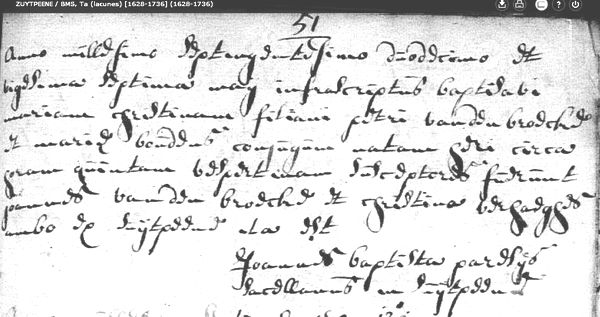 ZUYTPEENE / BMS, Ta (lacunes) [1628-1736] (1628-1736)
51
Anno millesimo septengentesimo duodecimo et
vigesima septima may infrascriptus baptisavi
mariam christinam filiam petri vanden broecke
et mariæ bouddens conjugum natam heri circa
horam quintam vespertinam susceptores fuerunt
joannes vanden broecke et christina verhaeghe
ambo ex zuytpeene ita est
Joannes baptista
sacellanus in zuytpeene